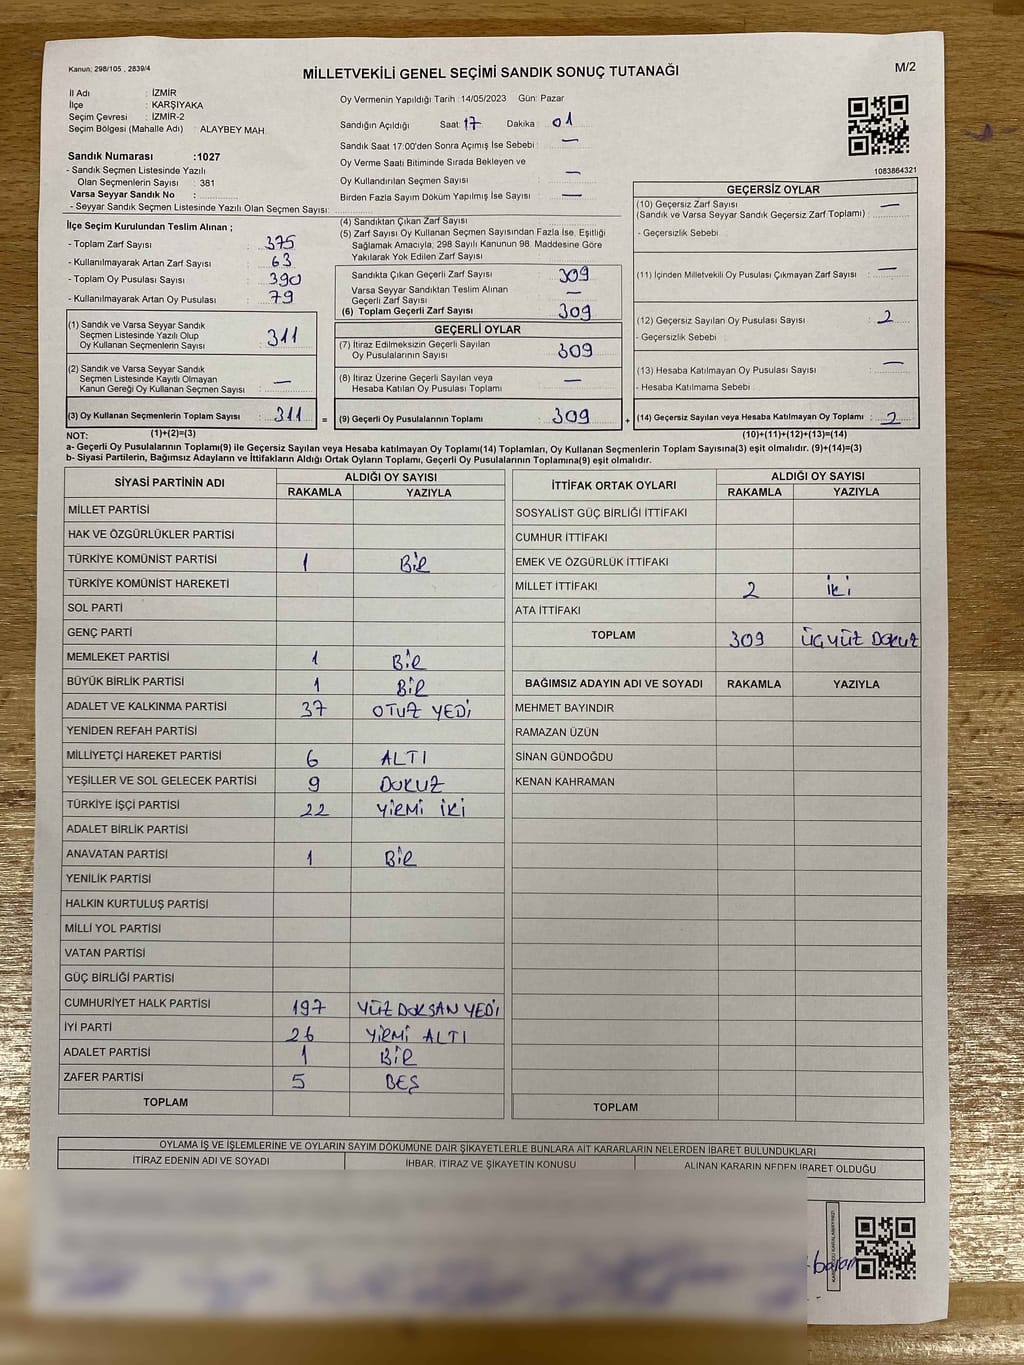 Kanun: 298/105 , 2839/4
MİLLETVEKİLİ GENEL SEÇİMİ SANDIK SONUÇ TUTANAĞI
M/2
İl Adı : İZMİR
İlçe : KARŞIYAKA
Seçim Çevresi : İZMİR-2
Seçim Bölgesi (Mahalle Adı) : ALAYBEY MAH.
Sandık Numarası :1027
- Sandık Seçmen Listesinde Yazılı
Olan Seçmenlerin Sayısı : 381
Varsa Seyyar Sandık No :
- Seyyar Sandık Seçmen Listesinde Yazılı Olan Seçmen Sayısı:
Oy Vermenin Yapıldığı Tarih :14/05/2023 Gün: Pazar
Sandığın Açıldığı Saat: 17 Dakika : 01
Sandık Saat 17:00'den Sonra Açımış İse Sebebi : —
Oy Verme Saati Bitiminde Sırada Bekleyen ve
Oy Kullandırılan Seçmen Sayısı : —
Birden Fazla Sayım Döküm Yapılmış İse Sayısı : —
1083864321
İlçe Seçim Kurulundan Teslim Alınan ;
- Toplam Zarf Sayısı : 375
- Kullanılmayarak Artan Zarf Sayısı : 63
- Toplam Oy Pusulası Sayısı : 390
- Kullanılmayarak Artan Oy Pusulası : 79
(1) Sandık ve Varsa Seyyar Sandık
Seçmen Listesinde Yazılı Olup
Oy Kullanan Seçmenlerin Sayısı : 311
(2) Sandık ve Varsa Seyyar Sandık
Seçmen Listesinde Kayıtlı Olmayan
Kanun Gereği Oy Kullanan Seçmen Sayısı : —
(3) Oy Kullanan Seçmenlerin Toplam Sayısı : 311 =
(1)+(2)=(3)
(4) Sandıktan Çıkan Zarf Sayısı
(5) Zarf Sayısı Oy Kullanan Seçmen Sayısından Fazla İse, Eşitliği
Sağlamak Amacıyla, 298 Sayılı Kanunun 98. Maddesine Göre
Yakılarak Yok Edilen Zarf Sayısı
Sandıkta Çıkan Geçerli Zarf Sayısı : 309
Varsa Seyyar Sandıktan Teslim Alınan
Geçerli Zarf Sayısı : —
(6) Toplam Geçerli Zarf Sayısı : 309
GEÇERLİ OYLAR
(7) İtiraz Edilmeksizin Geçerli Sayılan
Oy Pusulalarının Sayısı : 309
(8) İtiraz Üzerine Geçerli Sayılan veya
Hesaba Katılan Oy Pusulası Toplamı : —
(9) Geçerli Oy Pusulalarının Toplamı : 309 +
GEÇERSİZ OYLAR
(10) Geçersiz Zarf Sayısı —
(Sandık ve Varsa Seyyar Sandık Geçersiz Zarf Toplamı) :
- Geçersizlik Sebebi :
(11) İçinden Milletvekili Oy Pusulası Çıkmayan Zarf Sayısı : —
(12) Geçersiz Sayılan Oy Pusulası Sayısı : 2
- Geçersizlik Sebebi :
(13) Hesaba Katılmayan Oy Pusulası Sayısı : —
- Hesaba Katılmama Sebebi :
(14) Geçersiz Sayılan veya Hesaba Katılmayan Oy Toplamı : 2
(10)+(11)+(12)+(13)=(14)
NOT:
a- Geçerli Oy Pusulalarının Toplamı(9) ile Geçersiz Sayılan veya Hesaba katılmayan Oy Toplamı(14) Toplamları, Oy Kullanan Seçmenlerin Toplam Sayısına(3) eşit olmalıdır. (9)+(14)=(3)
b- Siyasi Partilerin, Bağımsız Adayların ve İttifakların Aldığı Ortak Oyların Toplamı, Geçerli Oy Pusulalarının Toplamına(9) eşit olmalıdır.
SİYASİ PARTİNİN ADI ALDIĞI OY SAYISI
RAKAMLA YAZIYLA
MİLLET PARTİSİ
HAK VE ÖZGÜRLÜKLER PARTİSİ
TÜRKİYE KOMÜNİST PARTİSİ 1 BİR
TÜRKİYE KOMÜNİST HAREKETİ
SOL PARTİ
GENÇ PARTİ
MEMLEKET PARTİSİ 1 BİR
BÜYÜK BİRLİK PARTİSİ 1 BİR
ADALET VE KALKINMA PARTİSİ 37 OTUZ YEDİ
YENİDEN REFAH PARTİSİ
MİLLİYETÇİ HAREKET PARTİSİ 6 ALTI
YEŞİLLER VE SOL GELECEK PARTİSİ 9 DOKUZ
TÜRKİYE İŞÇİ PARTİSİ 22 YİRMİ İKİ
ADALET BİRLİK PARTİSİ
ANAVATAN PARTİSİ 1 BİR
YENİLİK PARTİSİ
HALKIN KURTULUŞ PARTİSİ
MİLLİ YOL PARTİSİ
VATAN PARTİSİ
GÜÇ BİRLİĞİ PARTİSİ
CUMHURİYET HALK PARTİSİ 197 YÜZ DOKSAN YEDİ
İYİ PARTİ 26 YİRMİ ALTI
ADALET PARTİSİ 1 BİR
ZAFER PARTİSİ 5 BEŞ
TOPLAM
İTTİFAK ORTAK OYLARI ALDIĞI OY SAYISI
RAKAMLA YAZIYLA
SOSYALİST GÜÇ BİRLİĞİ İTTİFAKI
CUMHUR İTTİFAKI
EMEK VE ÖZGÜRLÜK İTTİFAKI
MİLLET İTTİFAKI 2 İKİ
ATA İTTİFAKI
TOPLAM 309 ÜÇYÜZ DOKUZ
BAĞIMSIZ ADAYIN ADI VE SOYADI RAKAMLA YAZIYLA
MEHMET BAYINDIR
RAMAZAN ÜZÜN
SİNAN GÜNDOĞDU
KENAN KAHRAMAN
TOPLAM
OYLAMA İŞ VE İŞLEMLERİNE VE OYLARIN SAYIM DÖKÜMÜNE DAİR ŞİKAYETLERLE BUNLARA AİT KARARLARIN NELERDEN İBARET BULUNDUKLARI
İTİRAZ EDENİN ADI VE SOYADI İHBAR, İTİRAZ VE ŞİKAYETİN KONUSU ALINAN KARARIN NEDEN İBARET OLDUĞU